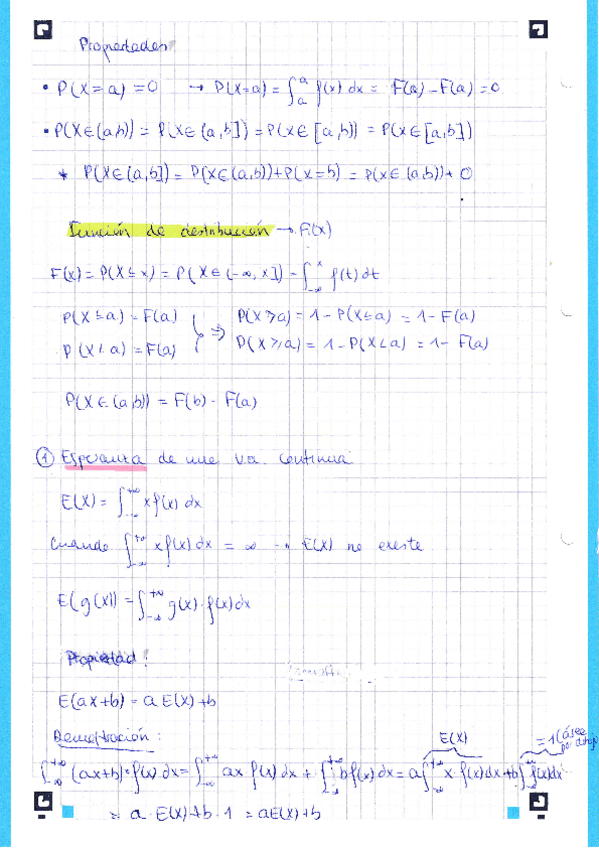 Propiedades
• P(X=a)=0 → P(X=a) = ∫ₐᵃ f(x) dx = F(a) - F(a) = 0
• P(X∈(a,b)) = P(X∈(a,b]) = P(X∈[a,b)) = P(X∈[a,b])
* P(X∈(a,b]) = P(X∈(a,b)) + P(X=b) = P(X∈(a,b)) + 0
Función de distribución → F(x)
F(x) = P(X≤x) = P(X∈(-∞,x]) = ∫₋∞ˣ f(t)dt
P(X≤a) = F(a) ⇒ P(X≥a) = 1 - P(X≤a) = 1 - F(a)
P(X<a) = F(a) P(X≥a) = 1 - P(X<a) = 1 - F(a)
P(X∈(a,b)) = F(b) - F(a)
① Esperanza de una va. continua
E(X) = ∫₋∞⁺∞ x f(x) dx
Cuando ∫₋∞⁺∞ x f(x) dx = ∞ → E(X) no existe
E(g(X)) = ∫₋∞⁺∞ g(x)·f(x)dx
Propiedad:
E(ax+b) = a E(X)+b
Demostración:
E(X) =1 (área
∫₋∞⁺∞ (ax+b)·f(x) dx = ∫₋∞⁺∞ ax f(x) dx + ∫₋∞⁺∞ b f(x) dx = a ∫₋∞⁺∞ x·f(x)dx + b ∫₋∞⁺∞ f(x)dx
= a·E(X)+b·1 = aE(X)+b